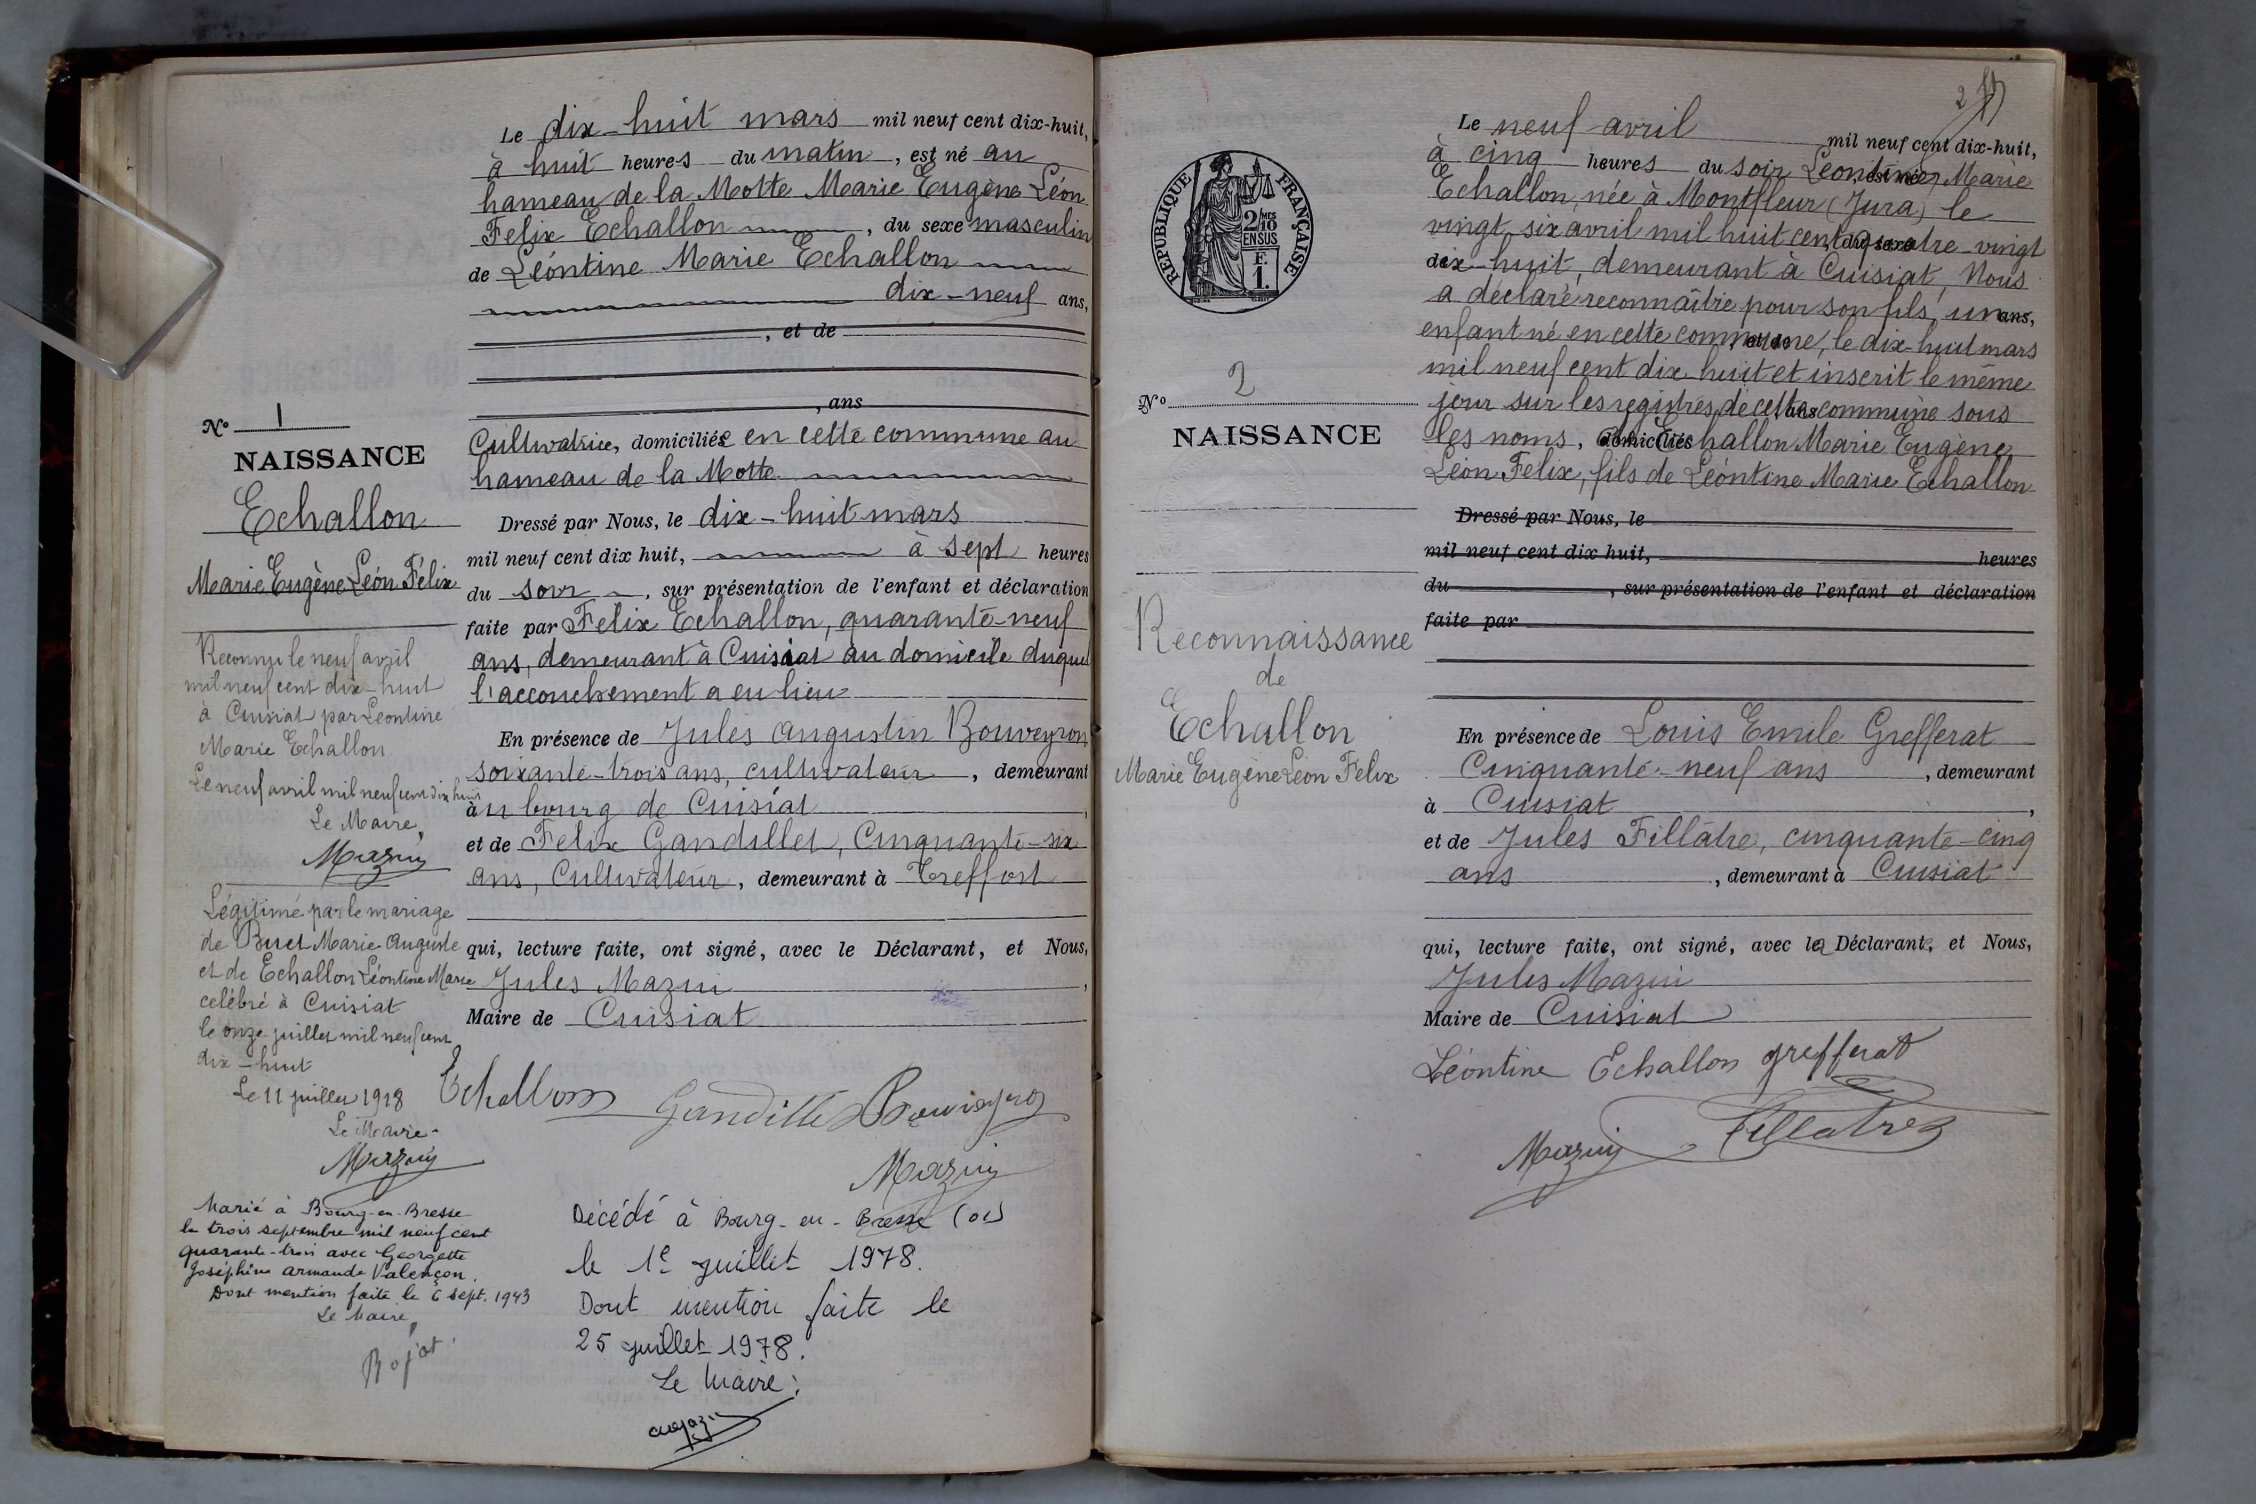 Le dix-huit mars mil neuf cent dix-huit,
à huit heures du matin, est né au
hameau de la Motte Marie Eugène Léon
Felix Echallon, du sexe masculin
de Léontine Marie Echallon
dix-neuf ans,
, et de
, ans
Cultivatrice, domiciliée en cette commune au
hameau de la Motte
Dressé par Nous, le dix-huit mars
mil neuf cent dix huit, à sept heures
du soir, sur présentation de l'enfant et déclaration
faite par Felix Echallon, quarante-neuf
ans, demeurant à Cuisiat au domicile duquel
l'accouchement a eu lieu
En présence de Jules Augustin Bouveyron
soixante-trois ans, cultivateur, demeurant
au bourg de Cuisiat,
et de Felix Gandillet, Cinquante-six
ans, Cultivateur, demeurant à Treffort
qui, lecture faite, ont signé, avec le Déclarant, et Nous,
Jules Mazuy,
Maire de Cuisiat
Echallon Gandillet Bouveyron
Mazuy
Décédé à Bourg-en-Bresse (01)
le 1e juillet 1978.
Dont mention faite le
25 juillet 1978.
Le Maire:
No 1
NAISSANCE
Echallon
Marie Eugène Léon Félix
Reconnu le neuf avril
mil neuf cent dix-huit
à Cuisiat par Léontine
Marie Echallon
Le neuf avril mil neuf cent dix huit
Le Maire,
Mazuy
Légitimé par le mariage
de Buet Marie Auguste
et de Echallon Léontine Marie
célébré à Cuisiat
le onze juillet mil neuf cent
dix-huit
Le 11 juillet 1918
Le Maire
Mazuy
Marié à Bourg-en-Bresse
le trois septembre mil neuf cent
quarante-trois avec Georgette
Joséphine Armande Valençon.
Dont mention faite le 6 sept. 1943
Le Maire,
Bojat
2
Le neuf avril mil neuf cent dix-huit,
à cinq heures du soir Léontine Marie
Echallon, née à Montfleur (Jura) le
vingt-six avril mil huit cent quatre-vingt
dix-huit, demeurant à Cuisiat, Nous
a déclaré reconnaître pour son fils, un ans,
enfant né en cette commune, le dix-huit mars
mil neuf cent dix-huit et inscrit le même
jour sur les registres de cette commune sous
les noms, de Echallon Marie Eugène
Léon Felix, fils de Léontine Marie Echallon
Dressé par Nous, le
mil neuf cent dix huit, heures
du , sur présentation de l'enfant et déclaration
faite par
En présence de Louis Emile Grefferat
Cinquante-neuf ans, demeurant
à Cuisiat,
et de Jules Fillâtre, cinquante-cinq
ans, demeurant à Cuisiat
qui, lecture faite, ont signé, avec la Déclarante, et Nous,
Jules Mazuy
Maire de Cuisiat
Léontine Echallon Grefferat
Mazuy Fillatre
RÉPUBLIQUE FRANÇAISE
2/10 MES
EN SUS
F.
1.
No 2
NAISSANCE
Reconnaissance
de
Echallon
Marie Eugène Léon Felix